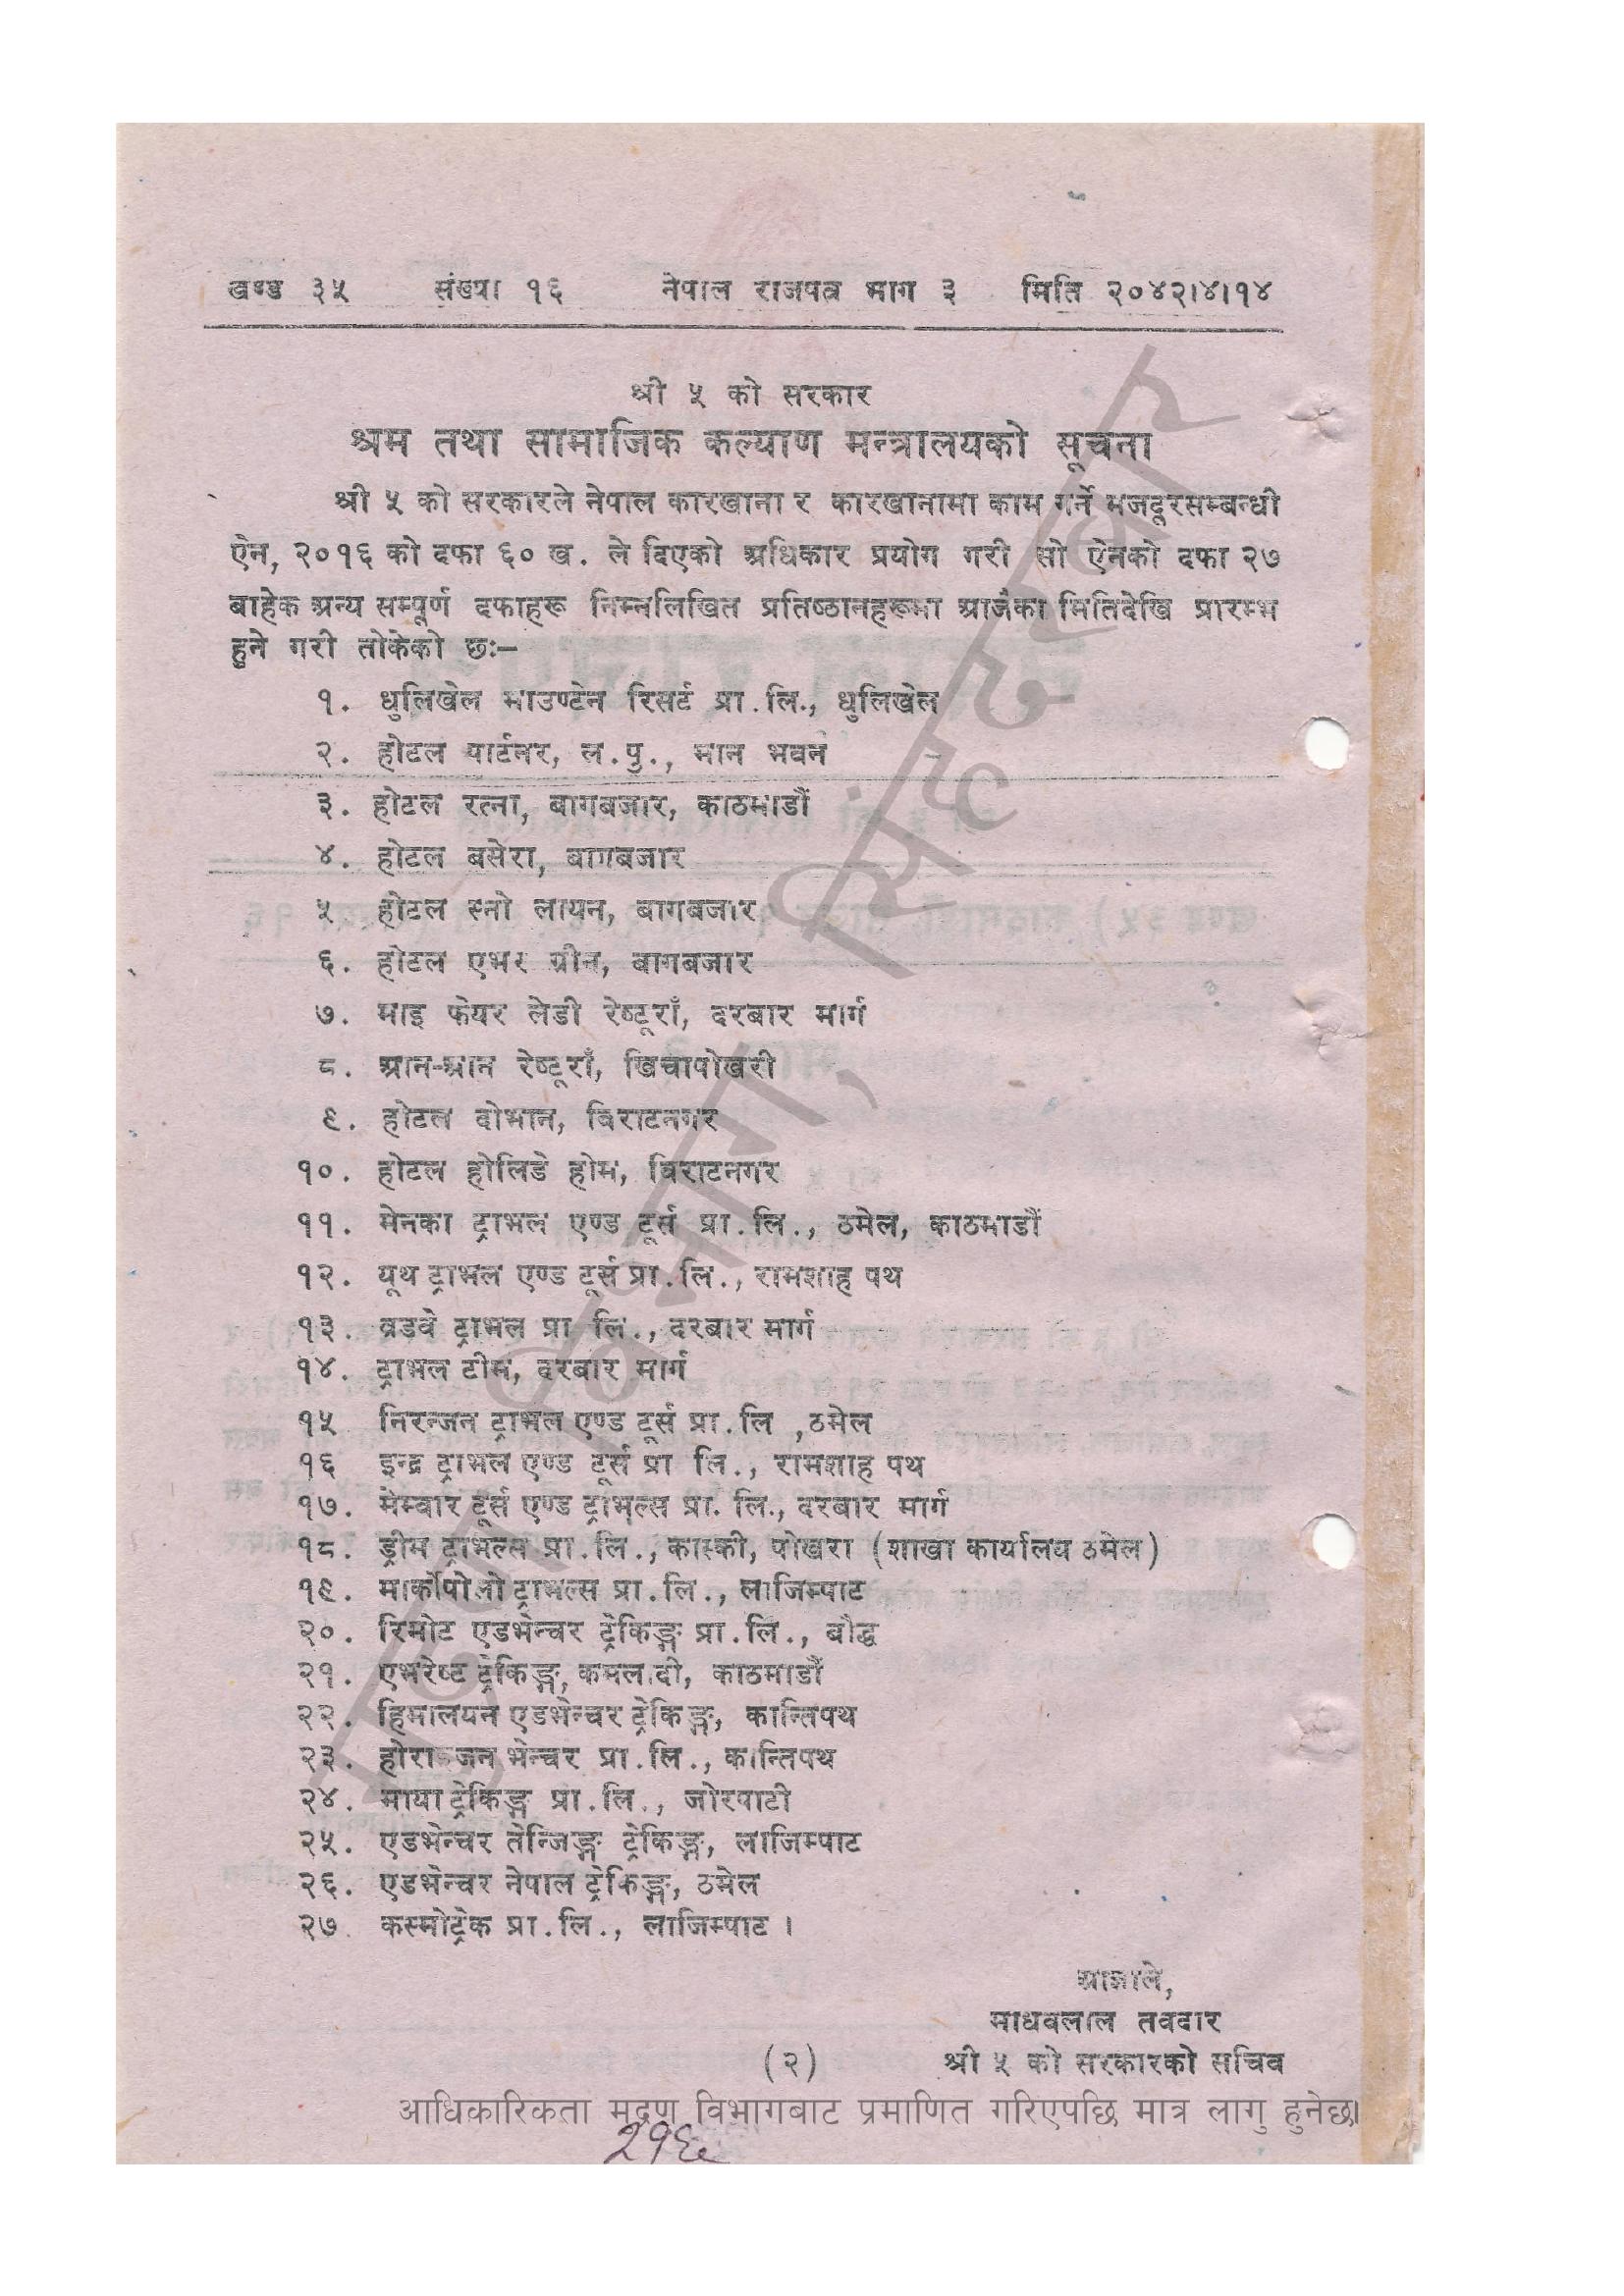 खण्ड ३५ संख्या १६ नेपाल राजपत्र भाग ३ मिति २०४२।४।१४
श्री ५ को सरकार
श्रम तथा सामाजिक कल्याण मन्त्रालयको सूचना
श्री ५ को सरकारले नेपाल कारखाना र कारखानामा काम गर्ने मजदूरसम्बन्धी
ऐन, २०१६ को दफा ६० ख. ले दिएको अधिकार प्रयोग गरी सो ऐनको दफा २७
बाहेक अन्य सम्पूर्ण दफाहरू निम्नलिखित प्रतिष्ठानहरूमा आजैका मितिदेखि प्रारम्भ
हुने गरी तोकेको छः–
१. धुलिखेल माउण्टेन रिसर्ट प्रा.लि., धुलिखेल
२. होटल पार्टनर, ल.पु., मान भवन
३. होटल रत्ना, बागबजार, काठमाडौं
४. होटल बसेरा, बागबजार
५ होटल स्नो लायन, बागबजार
६. होटल एभर ग्रीन, बागबजार
७. माइ फेयर लेडी रेष्टूराँ, दरबार मार्ग
८. आन-आन रेष्टूराँ, खिचापोखरी
९. होटल दोभान, विराटनगर
१०. होटल होलिडे होम, विराटनगर
११. मेनका ट्राभल एण्ड टूर्स प्रा.लि., ठमेल, काठमाडौं
१२. यूथ ट्राभल एण्ड टूर्स प्रा.लि., रामशाह पथ
१३. व्रडवे ट्राभल प्रा लि., दरबार मार्ग
१४. ट्राभल टीम, दरबार मार्ग
१५ निरन्जन ट्राभल एण्ड टूर्स प्रा.लि ,ठमेल
१६ इन्द्र ट्राभल एण्ड टूर्स प्रा लि., रामशाह पथ
१७. मेम्वार टूर्स एण्ड ट्राभल्स प्रा. लि., दरबार मार्ग
१८. ड्रीम ट्राभल्स प्रा.लि., कास्की, पोखरा (शाखा कार्यालय ठमेल)
१९. मार्कोपोलो ट्राभल्स प्रा.लि., लाजिम्पाट
२०. रिमोट एडभेन्चर ट्रेकिङ्ग प्रा.लि., बौद्ध
२१. एभरेष्ट ट्रेकिङ्ग, कमलादी, काठमाडौं
२२. हिमालयन एडभेन्चर ट्रेकिङ्ग, कान्तिपथ
२३. होराइजन भेन्चर प्रा.लि., कान्तिपथ
२४. माया ट्रेकिङ्ग प्रा.लि., जोरपाटी
२५. एडभेन्चर तेन्जिङ्ग ट्रेकिङ्ग, लाजिम्पाट
२६. एडभेन्चर नेपाल ट्रेकिङ्ग, ठमेल
२७. कस्मोट्रेक प्रा.लि., लाजिम्पाट ।
आज्ञाले,
माधवलाल तवदार
(२) श्री ५ को सरकारको सचिव
आधिकारिकता मुद्रण विभागबाट प्रमाणित गरिएपछि मात्र लागु हुनेछ।
२१६
मुद्रण विभाग, सिंहदरबार